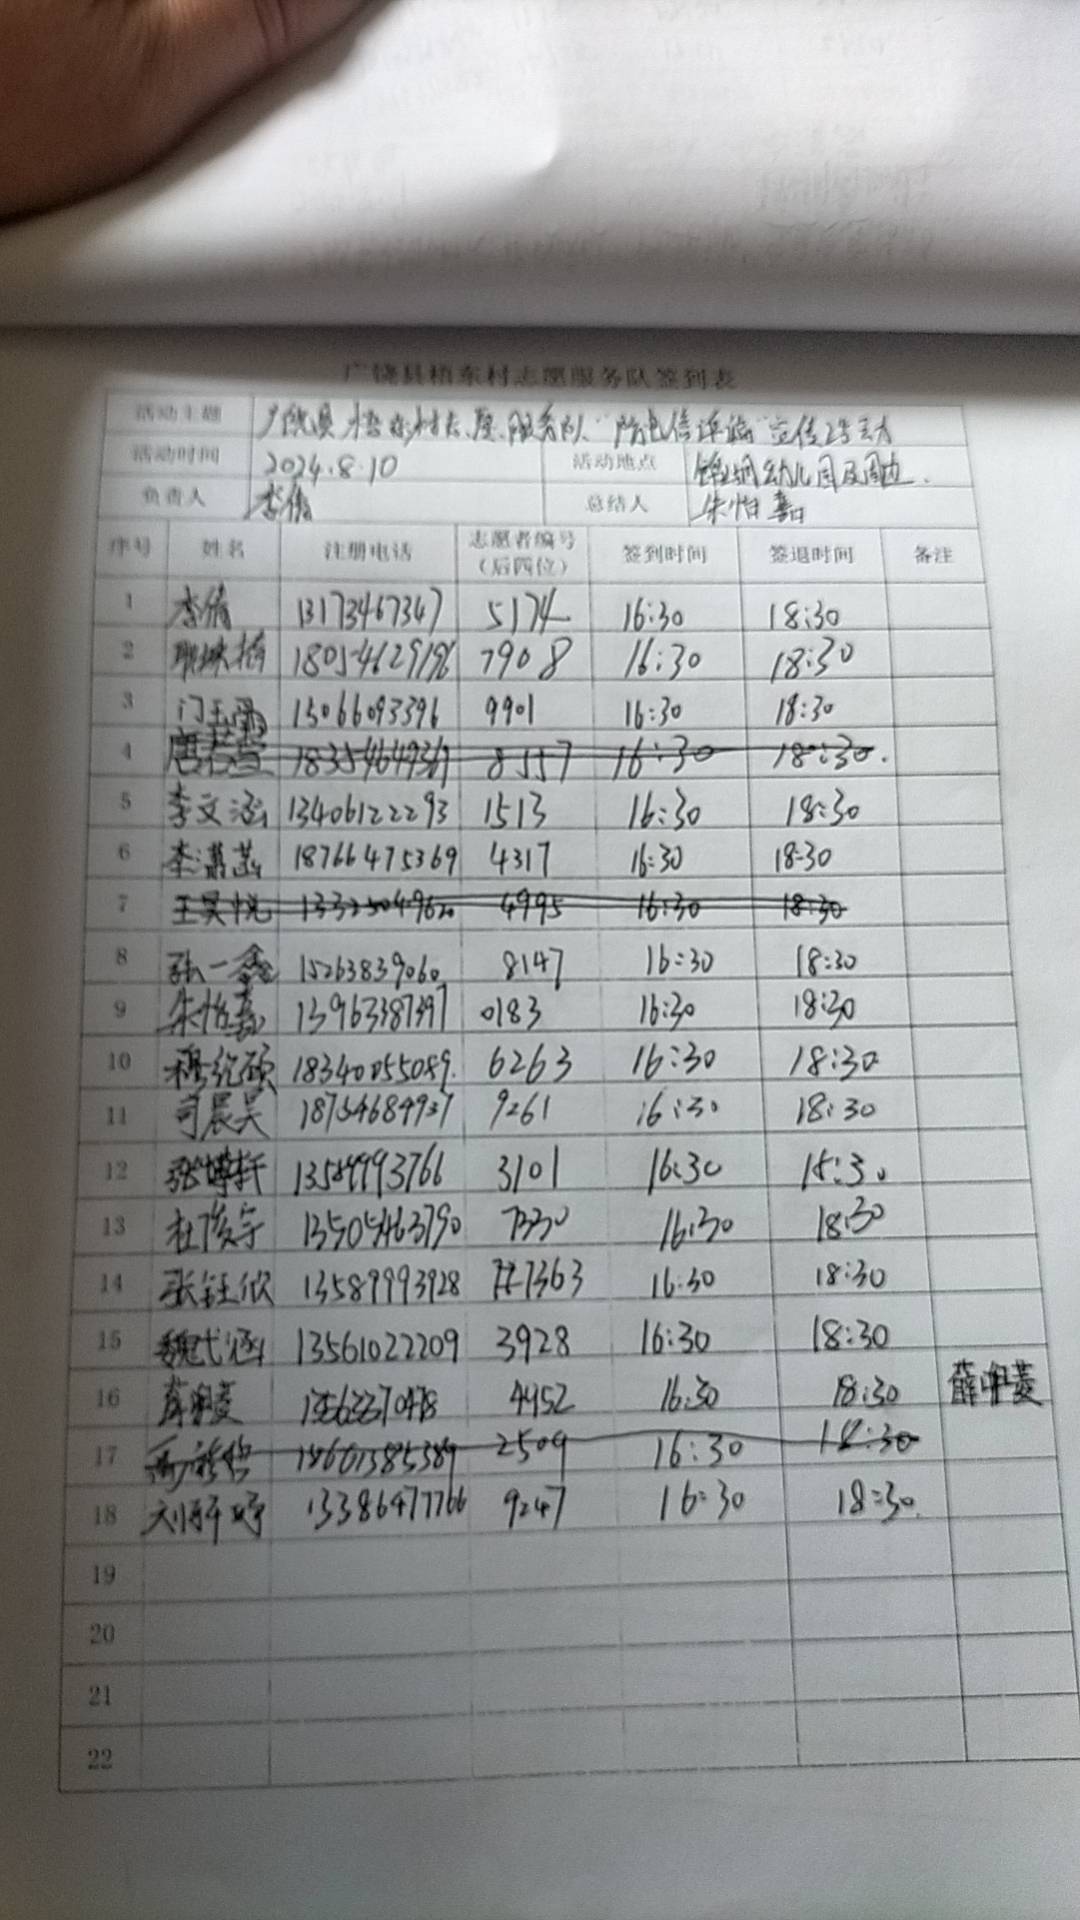 广饶县梧东村志愿服务队签到表
活动主题 广饶县梧东村志愿服务队“防电信诈骗”宣传活动
活动时间 2024.8.10 活动地点 幼儿园及周边.
负责人 李倩 总结人 朱怡嘉
序号 姓名 注册电话 志愿者编号（后四位） 签到时间 签退时间 备注
1 李倩 13173467347 5174 16:30 18:30
2 7908 16:30 18:30
3 门玉雪 15066093396 9901 16:30 18:30
4 唐若萱 8557 16:30 18:30.
5 李文涵 13406122293 1513 16:30 18:30
6 李潇菡 18766475369 4317 16:30 18:30
7 王昊悦 4995 16:30 18:30
8 张一鑫 15263839060 8147 16:30 18:30
9 朱怡嘉 13963387397 0183 16:30 18:30
10 18340055089. 6263 16:30 18:30
11 司晨昊 18754684937 9261 16:30 18:30
12 张博轩 13589993766 3101 16:30 18:30
13 杜俊宇 13505463790 7330 16:30 18:30
14 张钰欣 13589993928 7363 16:30 18:30
15 魏代涵 13561022209 3928 16:30 18:30
16 薛明菱 4452 16:30 18:30 薛明菱
17 2509 16:30 18:30
18 13386477766 9247 16:30 18:30.
19
20
21
22